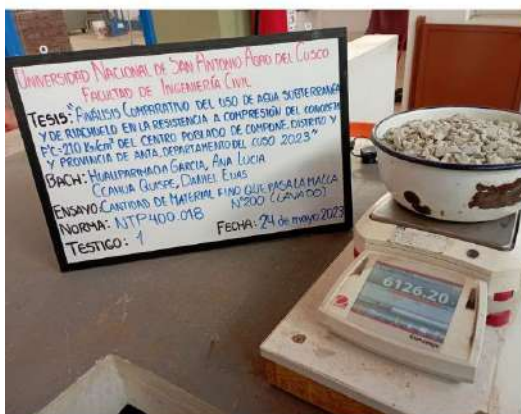 UNIVERSIDAD NACIONAL DE SAN ANTONIO ABAD DEL CUSCO
FACULTAD DE INGENIERÍA CIVIL
TESIS: "ANÁLISIS COMPARATIVO DEL USO DE AGUA SUBTERRANEA
Y DE RIACHUELO EN LA RESISTENCIA A COMPRESIÓN DEL CONCRETO
F'C=210 Kg/cm² DEL CENTRO POBLADO DE COMPONE, DISTRITO Y
Y PROVINCIA DE ANTA, DEPARTAMENTO DEL CUSO 2023"
BACH: HUALLPARIMADA GARCIA, ANA LUCIA
CCAHUA QUISPE, DANIEL ELIAS
ENSAYO: CANTIDAD DE MATERIAL FINO QUE PASA LA MALLA
N°200 (LAVADO)
NORMA: NTP 400.018
FECHA: 24 de mayo 2023
TESTIGO: 1
6126.20